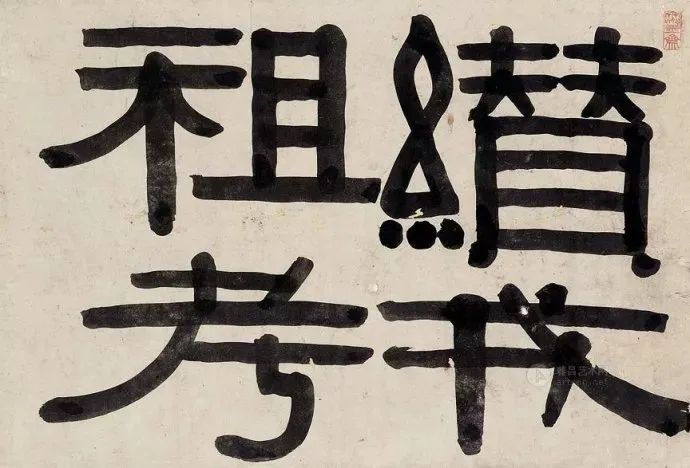 纉戎
祖考
雅昌艺术网
artron.net